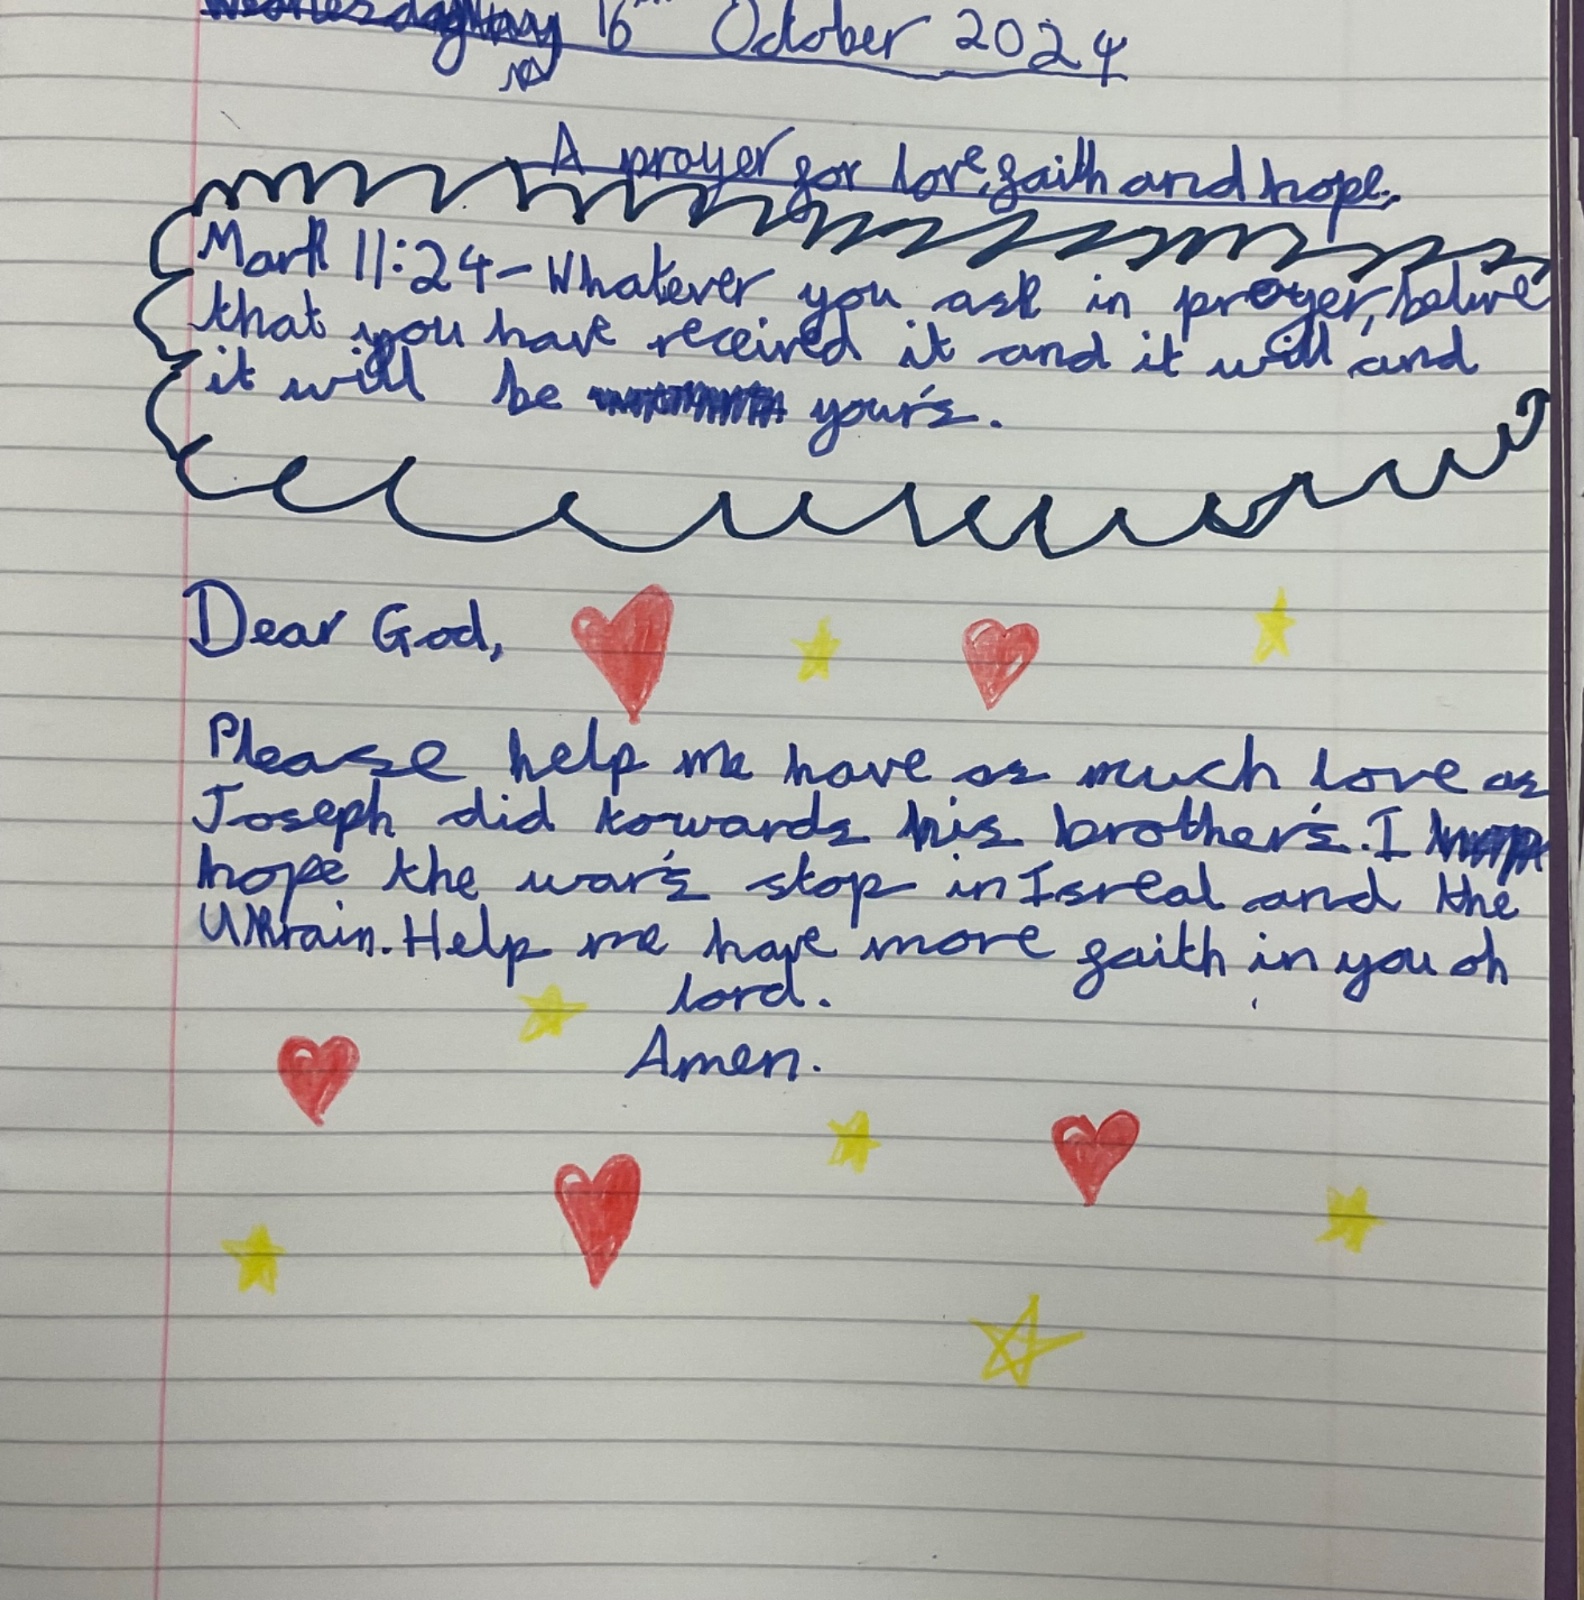 Wednesday 16th October 2024
A prayer for love, faith and hope.
Mark 11:24 - Whatever you ask in prayer, belive
that you have received it and it will and
it will be your's.
Dear God,
Please help me have as much love as
Joseph did towards his brother's. I
hope the war's stop in Isreal and the
Ukrain. Help me have more faith in you oh
lord.
Amen.